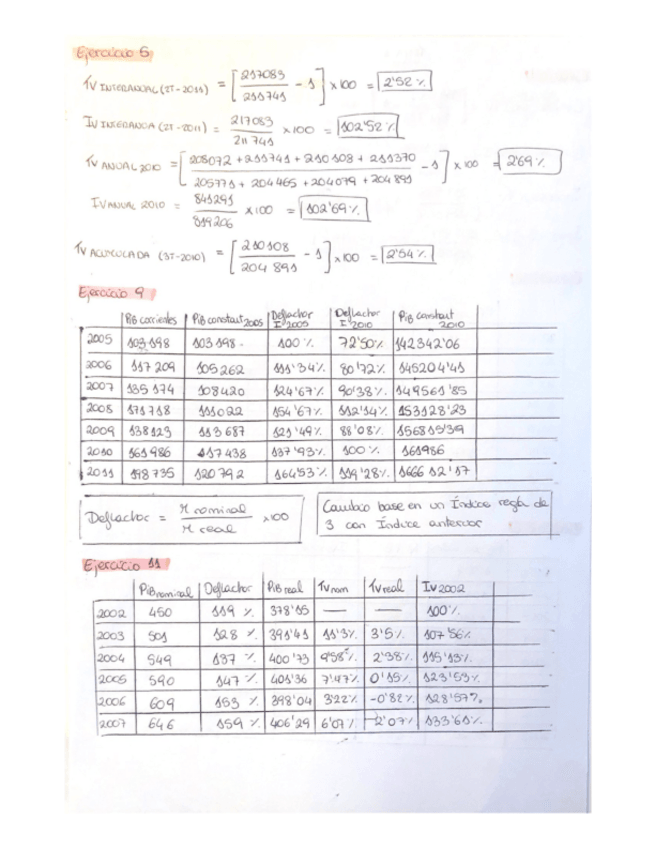 Ejercicio 6
TV INTERANUAL (2T-2011) = [217083 / 211741 - 1] x 100 = 2'52 %
IV INTERANUA (2T-2011) = 217083 / 211741 x 100 = 102'52 %
TV ANUAL 2010 = [208072 + 211741 + 210108 + 211370 / 205771 + 204465 + 204079 + 204891 - 1] x 100 = 2'69 %
IV ANUAL 2010 = 841291 / 819206 x 100 = 102'69 %
TV ACUMULADA (3T-2010) = [210108 / 204891 - 1] x 100 = 2'54 %
Ejercicio 9
PiB corrientes PiB constant 2005 Deflactor I 2005 Deflactor I 2010 PiB constant 2010
2005 103198 103198 100 % 72'50% 142342'06
2006 117209 105262 111'34% 80'72% 145204'41
2007 135174 108420 124'67% 90'38% 149561'85
2008 171718 111022 154'67% 112'14% 153128'23
2009 138123 113687 121'49% 88'08%
2010 161986 117438 137'93% 100 % 161986
2011 198735 120792 164'53% 119'28% 166612'17
Deflactor = M nominal / M real x100
Cambio base en un Índice regla de
3 con Índice anterior
Ejercicio 11
PiB nominal Deflactor PiB real TV nom TV real IV 2002
2002 450 119 % 378'15 — — 100%
2003 501 128 % 391'41 11'3% 3'5% 107'56%
2004 549 137 % 400'73 9'58% 2'38% 115'13%
2005 590 147 % 401'36 7'47% 0'15% 123'53%
2006 609 153 % 398'04 3'22% -0'82% 128'57%
2007 646 159 % 406'29 6'07% 2'07% 133'61%